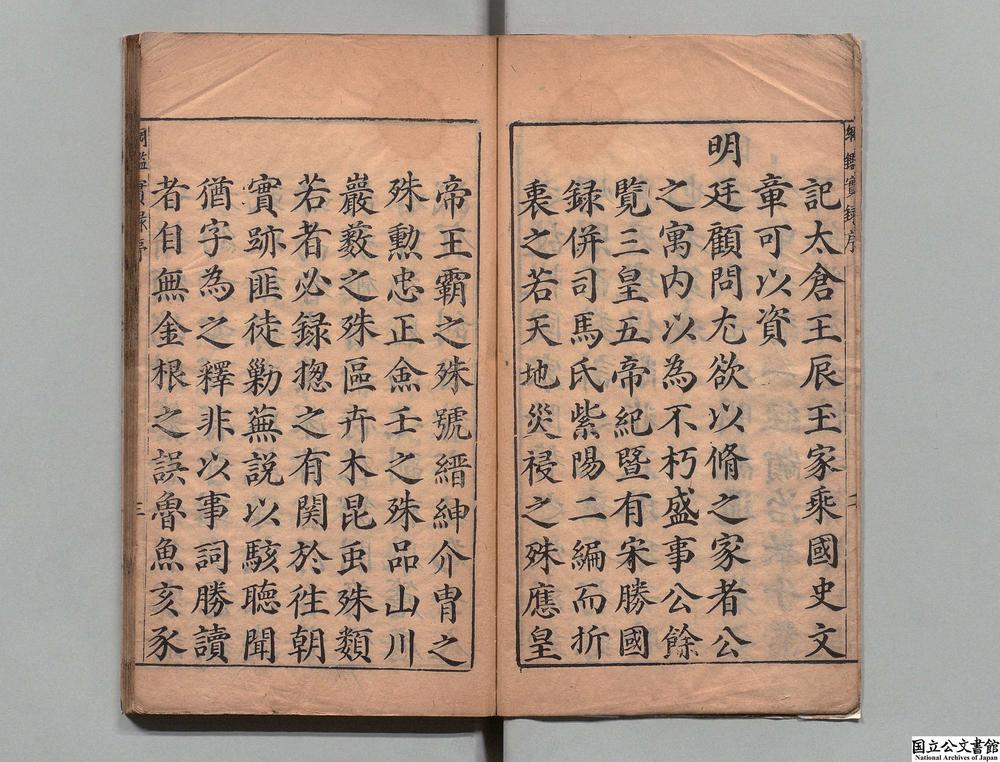 綱鑑實録序
記太倉王辰玉家乘國史文
章可以資
明廷顧問尤欲以脩之家者公
之寓内以為不朽盛事公餘
覽三皇五帝紀暨有宋勝國
録併司馬氏紫陽二編而折
衷之若天地災祲之殊應皇
帝王霸之殊號縉紳介冑之
殊勲忠正僉壬之殊品山川
巖藪之殊區卉木昆虫殊類
若者必録揔之有関於往朝
實跡匪徒勦蕪説以駭聴聞
猶字為之釋非以事詞勝讀
者自無金根之誤魯魚亥豕
綱鑑實録序
三
国立公文書館
National Archives of Japan